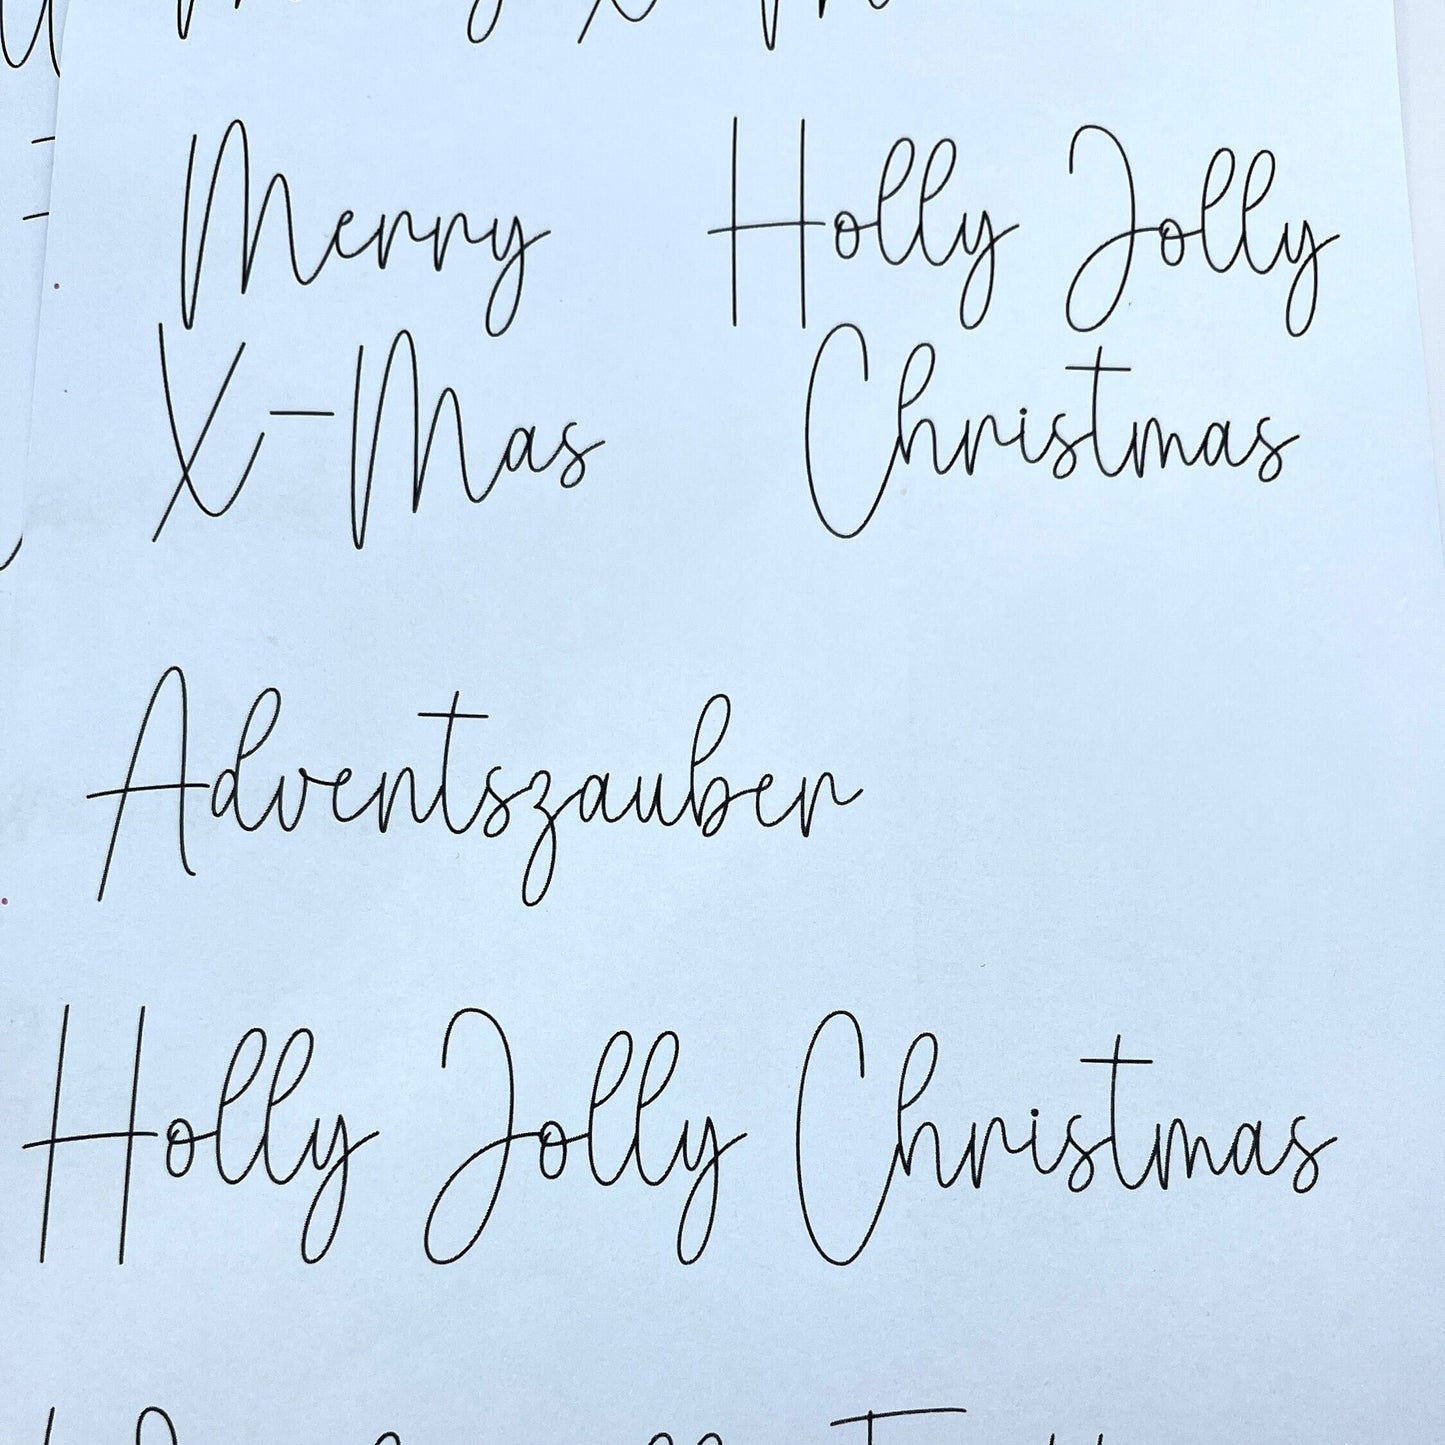 Merry
X-Mas
Holly Jolly
Christmas
Adventszauber
Holly Jolly Christmas